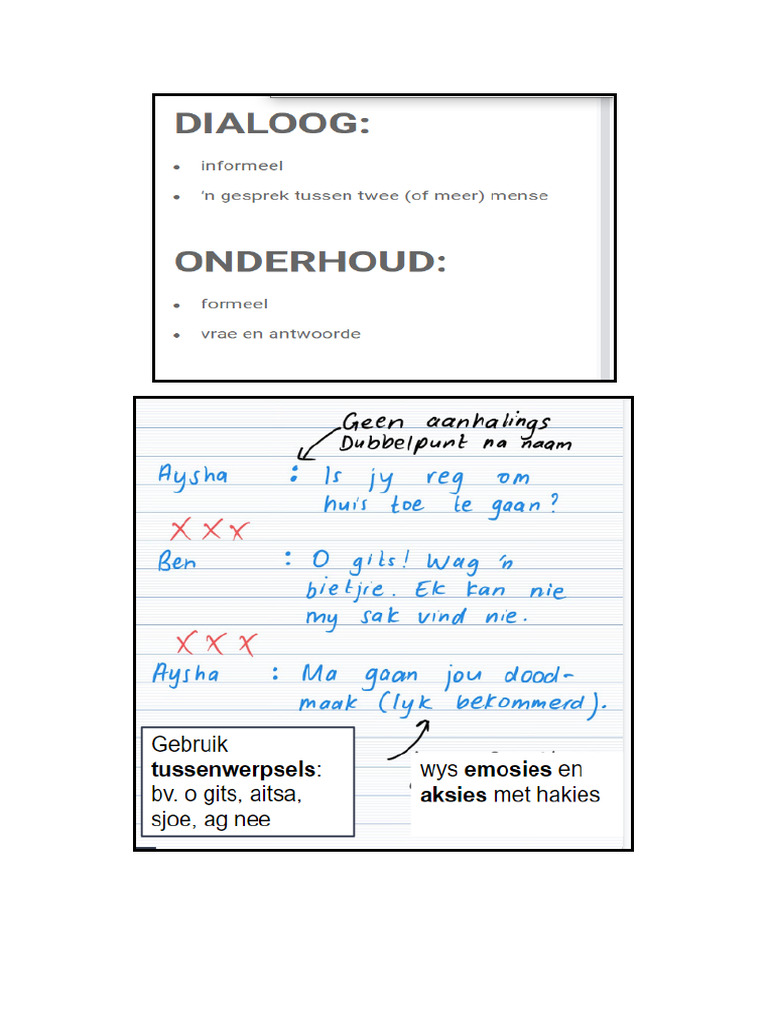 DIALOOG:
• informeel
• 'n gesprek tussen twee (of meer) mense
ONDERHOUD:
• formeel
• vrae en antwoorde
Geen aanhalings
Dubbelpunt na naam
Aysha : Is jy reg om
huis toe te gaan?
X X X
Ben : O gits! Wag 'n
bietjie. Ek kan nie
my sak vind nie.
X X X
Aysha : Ma gaan jou dood-
maak (lyk bekommerd).
Gebruik
tussenwerpsels:
bv. o gits, aitsa,
sjoe, ag nee
wys emosies en
aksies met hakies